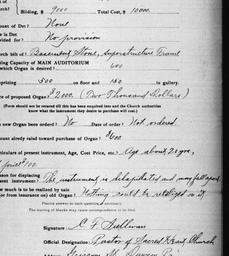 Bilding, $ 9000 Total Cost, $ 10000.
of Debt? None
is Det
vided for? No provision
hurch bilt of? Basement Stone, Superstructure Frame
ting Capacity of MAIN AUDITORIUM
which Organ is desired? 650
prizing 500 on floor and 150 in gallery.
ce of proposed Organ? $2000. (Two Thousand Dollars)
(Form should not be returnd till this has been enquired into and the Church authorities
know what the instrument they desire to purchase will cost.)
new Organ been orderd? No Date of Order? Not ordered.
mount alredy raisd toward purchase of Organ? $
ticulars of present instrument, Age, Cost Price, etc.? Age about 20 yrs,
$100.
son for displacing
sent instrument? The instrument is dilapidated and may fall apart
much is to be realized by sale
or from insurance on) old Organ? Nothing could be realized on it.
Pastor
The tearing of blanks may cause correspondence to be lost.
Signature C F Sullivan
Official Designation, Pastor of Sacred Heart Church